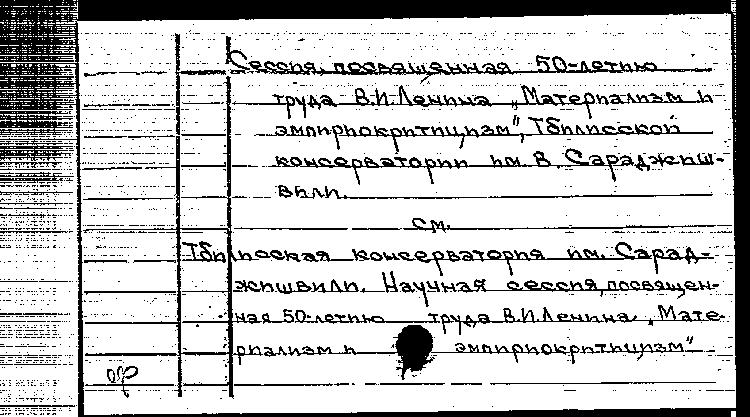 Сессия, посвященная 50-летию
труда В.И.Ленина „Материализм и
эмпириокритицизм", Тбилисской
консерватории им. В. Сараджиш-
вили.
см.
Тбилисская консерватория им. Сарад-
жишвили. Научная сессия, посвящен-
ная 50-летию труда В.И.Ленина „Мате-
риализм и эмпириокритицизм"